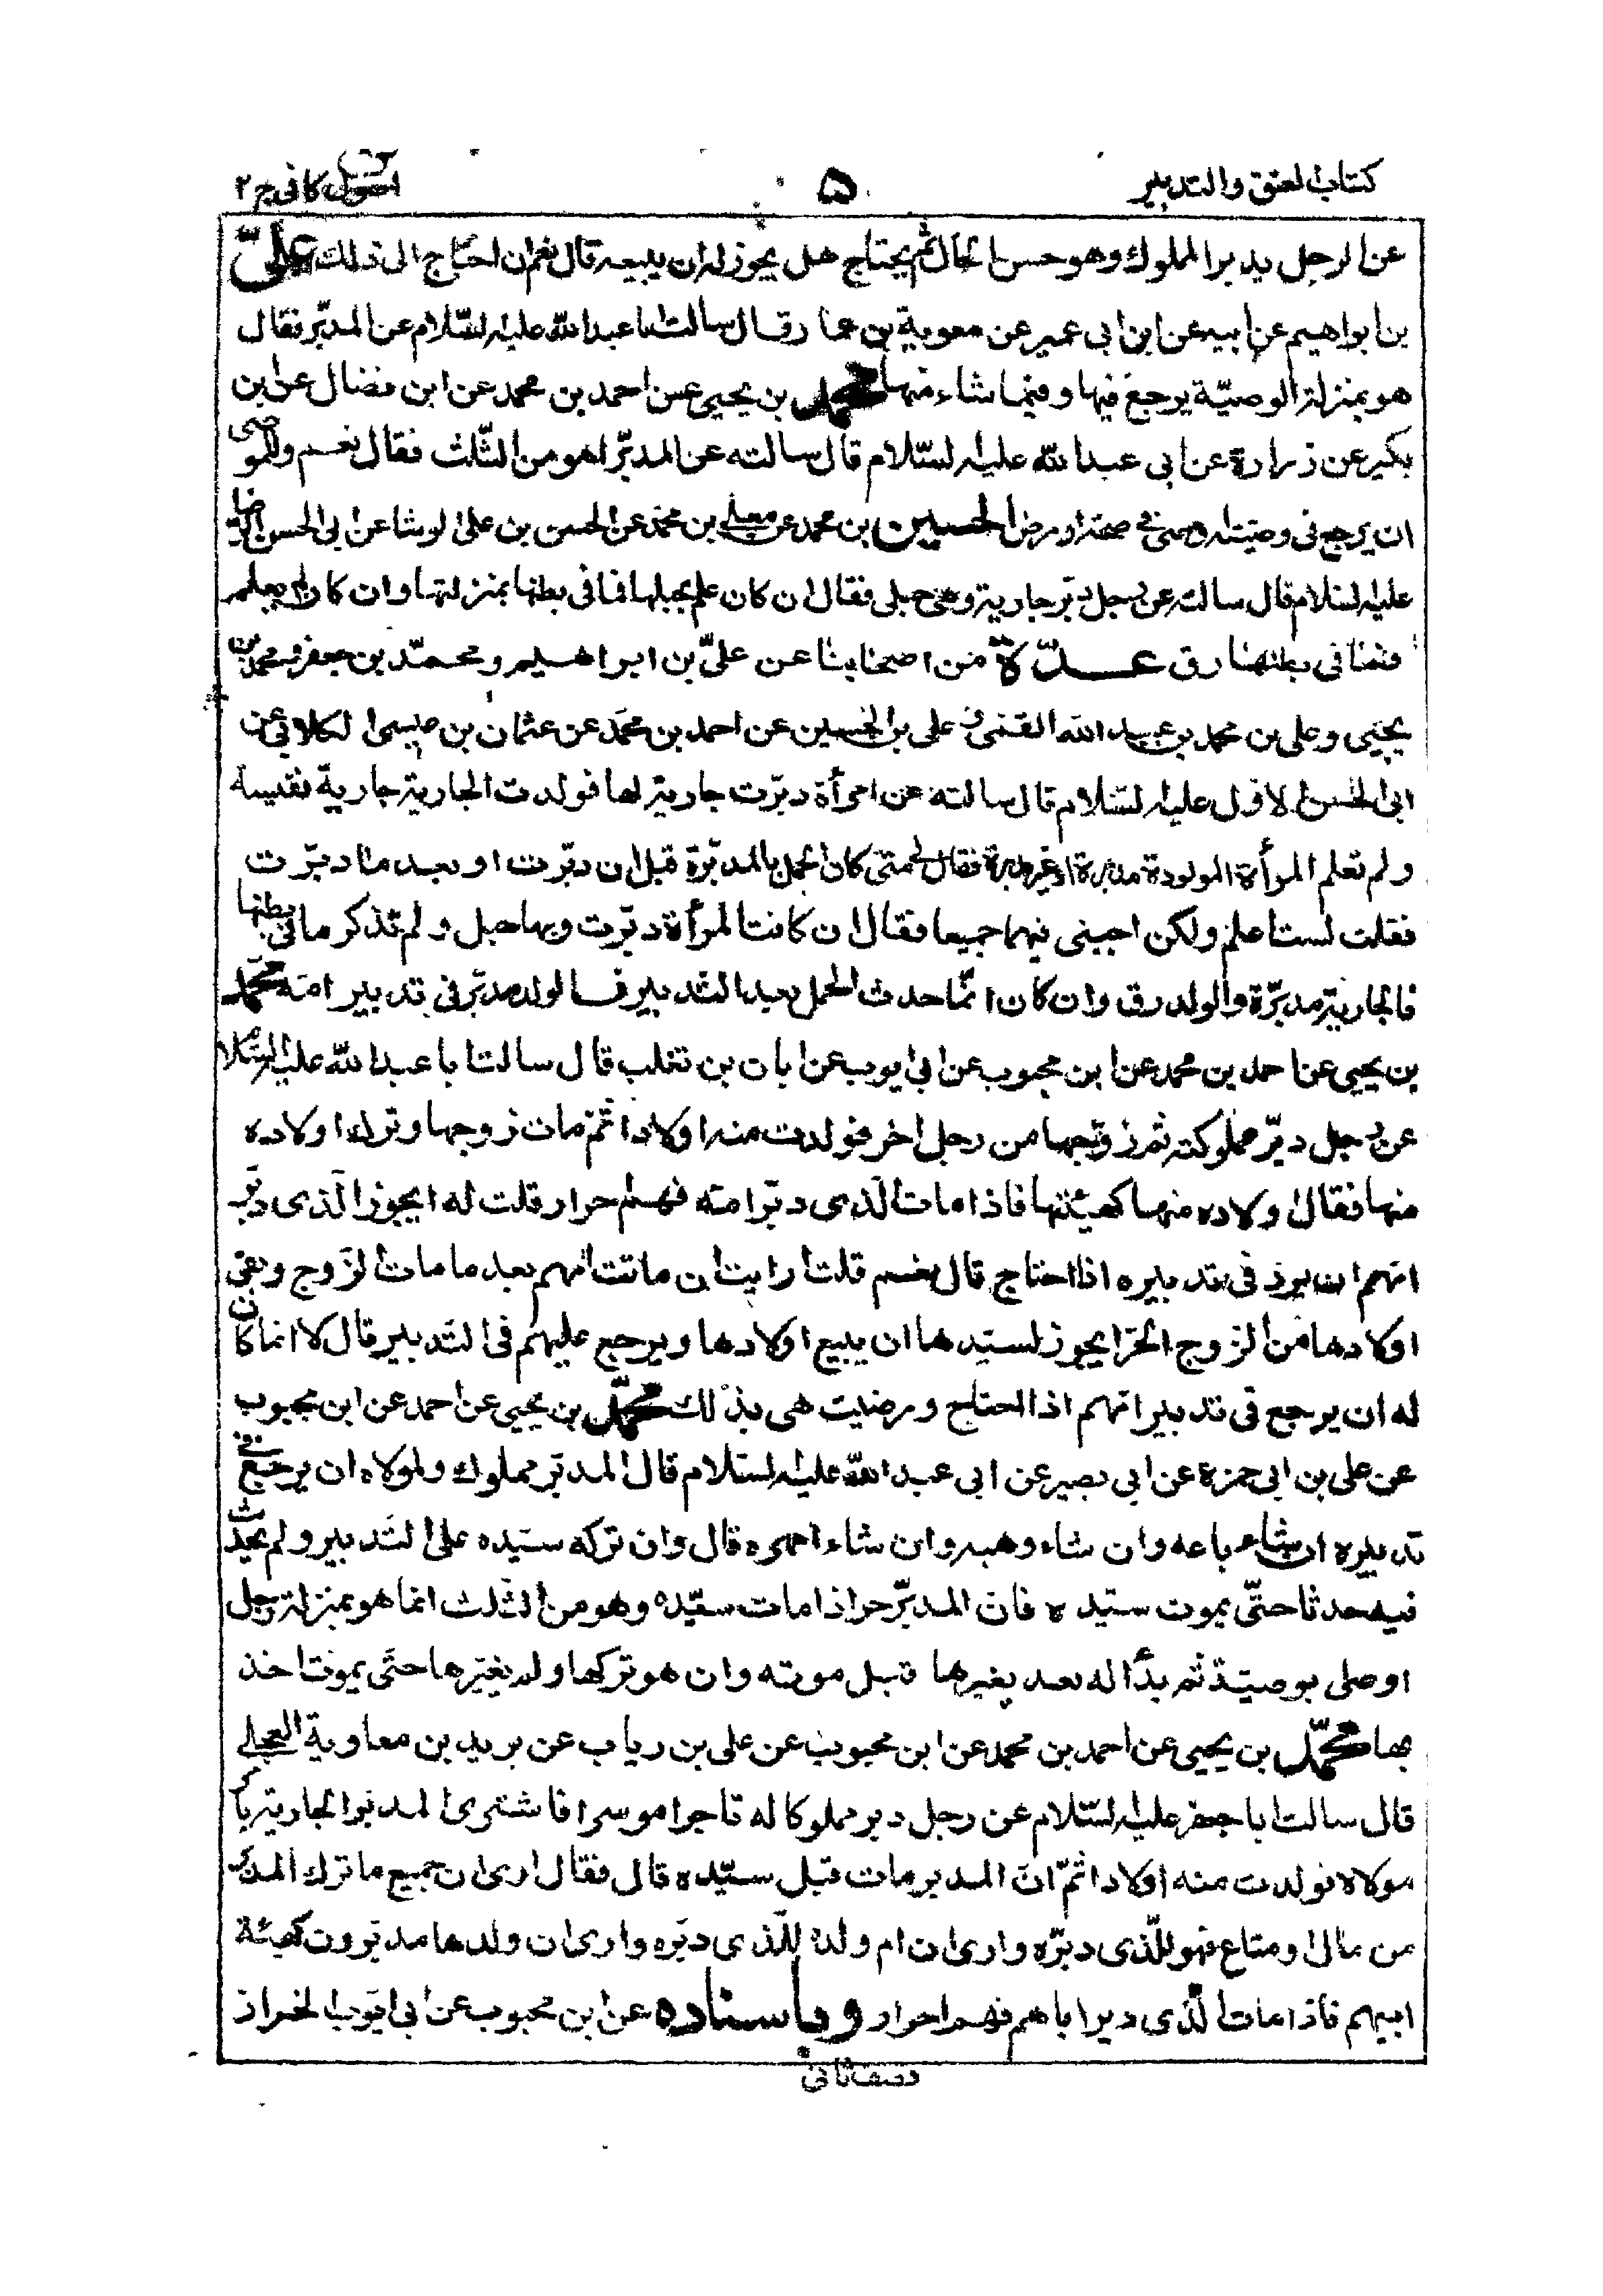 كتاب العتق والتدبير
۵
كافى ج ۲
عن الرجل يدبر المملوك وهو حسن الحال ثم يحتاج هل يجوز له ان يبيعه قال نعم ان احتاج الى ذلك علىّ
بن ابراهيم عن ابيه عن ابن ابى عمير عن معوية بن عمار قال سالت ابا عبد الله عليه السّلام عن المدبّر فقال
هو بمنزلة الوصيّة يرجع فيها وفيما شاء منها محمد بن يحيى عن احمد بن محمد عن ابن فضال عن ابن
بكير عن زرارة عن ابى عبد الله عليه السّلام قال سالته عن المدبّر اهو من الثّلث فقال نعم وللموصى
ان يرجع فى وصيته اوصى فى صحة او مرض الحسين بن محمد عن معلى بن محمد عن الحسن بن على الوشا عن ابى الحسن الرضا
عليه السلام قال سالته عن رجل دبّر جارية وهى حبلى فقال ان كان علم بحبلها فما فى بطنها بمنزلتها وان كان لم يعلم
فما فى بطنها رق عدّة من اصحابنا عن علىّ بن ابراهيم ومحمّد بن جعفر ومحمد بن
يحيى وعلى بن محمد بن عبيد الله القمى و على بن الحسين عن احمد بن محمّد عن عثمان بن عيسى الكلابى عن
ابى الحسن الاول عليه السّلام قال سالته عن امرأة دبّرت جارية لها فولدت الجارية جارية نفيسة
ولم تعلم المرأة المولودة مدبرة او غير مدبرة فقال لى متى كان الحمل بالمدبّرة قبل ان دبّرت او بعد ما دبّرت
فقلت لست اعلم ولكن اجبنى فيهما جميعا فقال ان كانت المرأة دبّرت وبها حبل ولم تذكر ما فى بطنها
فالجارية مدبّرة والولد رق وان كان انّما حدث الحمل بعد التدبير فالولد مدبّر فى تدبير امّه محمّد
بن يحيى عن احمد بن محمد عن ابن محبوب عن ابى ايوب عن ابان بن تغلب قال سالت ابا عبد الله عليه السّلام
عن رجل دبّر مملوكته ثم زوّجها من رجل اخر فولدت منه اولادا ثمّ مات زوجها وترك اولاده
منها فقال اولاده منها كهيئتها فاذا مات الّذى دبّر امّه فهم احرار قلت له ايجوز الّذى دبّر
امّهم ان يرد فى تدبيره اذا احتاج قال نعم قلت ارايت ان ماتت امّهم بعد ما مات الزّوج وبقى
اولادها من الزوج الحرّ ايجوز لسيّدها ان يبيع اولادها ويرجع عليهم فى التّدبير قال لا انما كان
له ان يرجع فى تدبير امّهم اذا احتاج ورضيت هى بذلك محمّد بن يحيى عن احمد عن ابن محبوب
عن على بن ابى حمزة عن ابى بصير عن ابى عبد الله عليه السّلام قال المدبّر مملوك ولمولاه ان يرجع فى
تدبيره ان شاء باعه وان شاء وهبه وان شاء امهره قال وان تركه سيّده على التّدبير ولم يحدث
فيه حدثا حتّى يموت سيّده فانّ المدبّر حر اذا مات سيّده وهو من الثّلث انما هو بمنزلة رجل
اوصى بوصيّة ثم بدأ له بعد يغيرها قبل موته وان هو تركها ولم يغيّرها حتّى يموت اخذ
بها محمّد بن يحيى عن احمد بن محمد عن ابن محبوب عن على بن رياب عن بريد بن معاوية العجلى
قال سالت ابا جعفر عليه السّلام عن رجل دبر مملوكا له تاجرا موسرا فاشترى المدبّر الجارية بامر
مولاه فولدت منه اولادا ثمّ انّ المدبر مات قبل سيّده قال فقال ارى ان جميع ما ترك المدبر
من مال او متاع فهو للّذى دبّره وارى ان ام ولده للّذى دبّره وارى ان ولدها مدبّرون كهيئة
ابيهم فاذا مات الّذى دبر اباهم فهم احرار وباسناده عن ابن محبوب عن ابى ايّوب الخراز
نصف ثانى